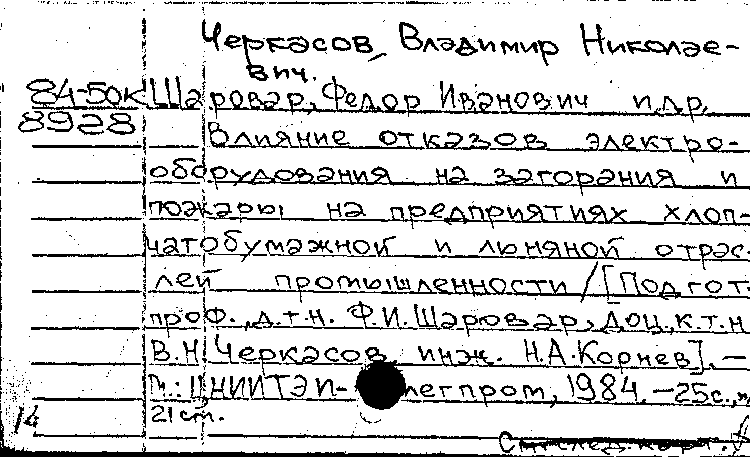 Черкасов, Владимир Николае-
вич.
84-50к Шаровар, Федор Иванович и др.
8928 Влияние отказов электро-
оборудования на загорания и
пожары на предприятиях хлоп-
чатобумажной и льняной отрас-
лей промышленности/[Подгот.
проф., д.т.н. Ф.И. Шаровар, доц., к.т.н
В.Н. Черкасов, инж. Н.А. Корнев]. —
М.: ЦНИИТЭИ- легпром, 1984. — 25с.,
14 21 cm.
См. след. карт.